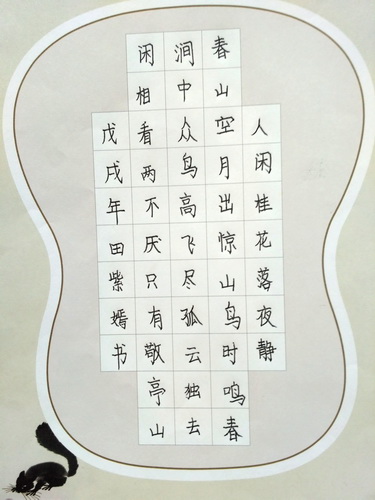 人闲桂花落夜静
春山空月出惊山鸟时鸣春
涧中众鸟高飞尽孤云独去
闲相看两不厌只有敬亭山
戊戌年田紫嫣书